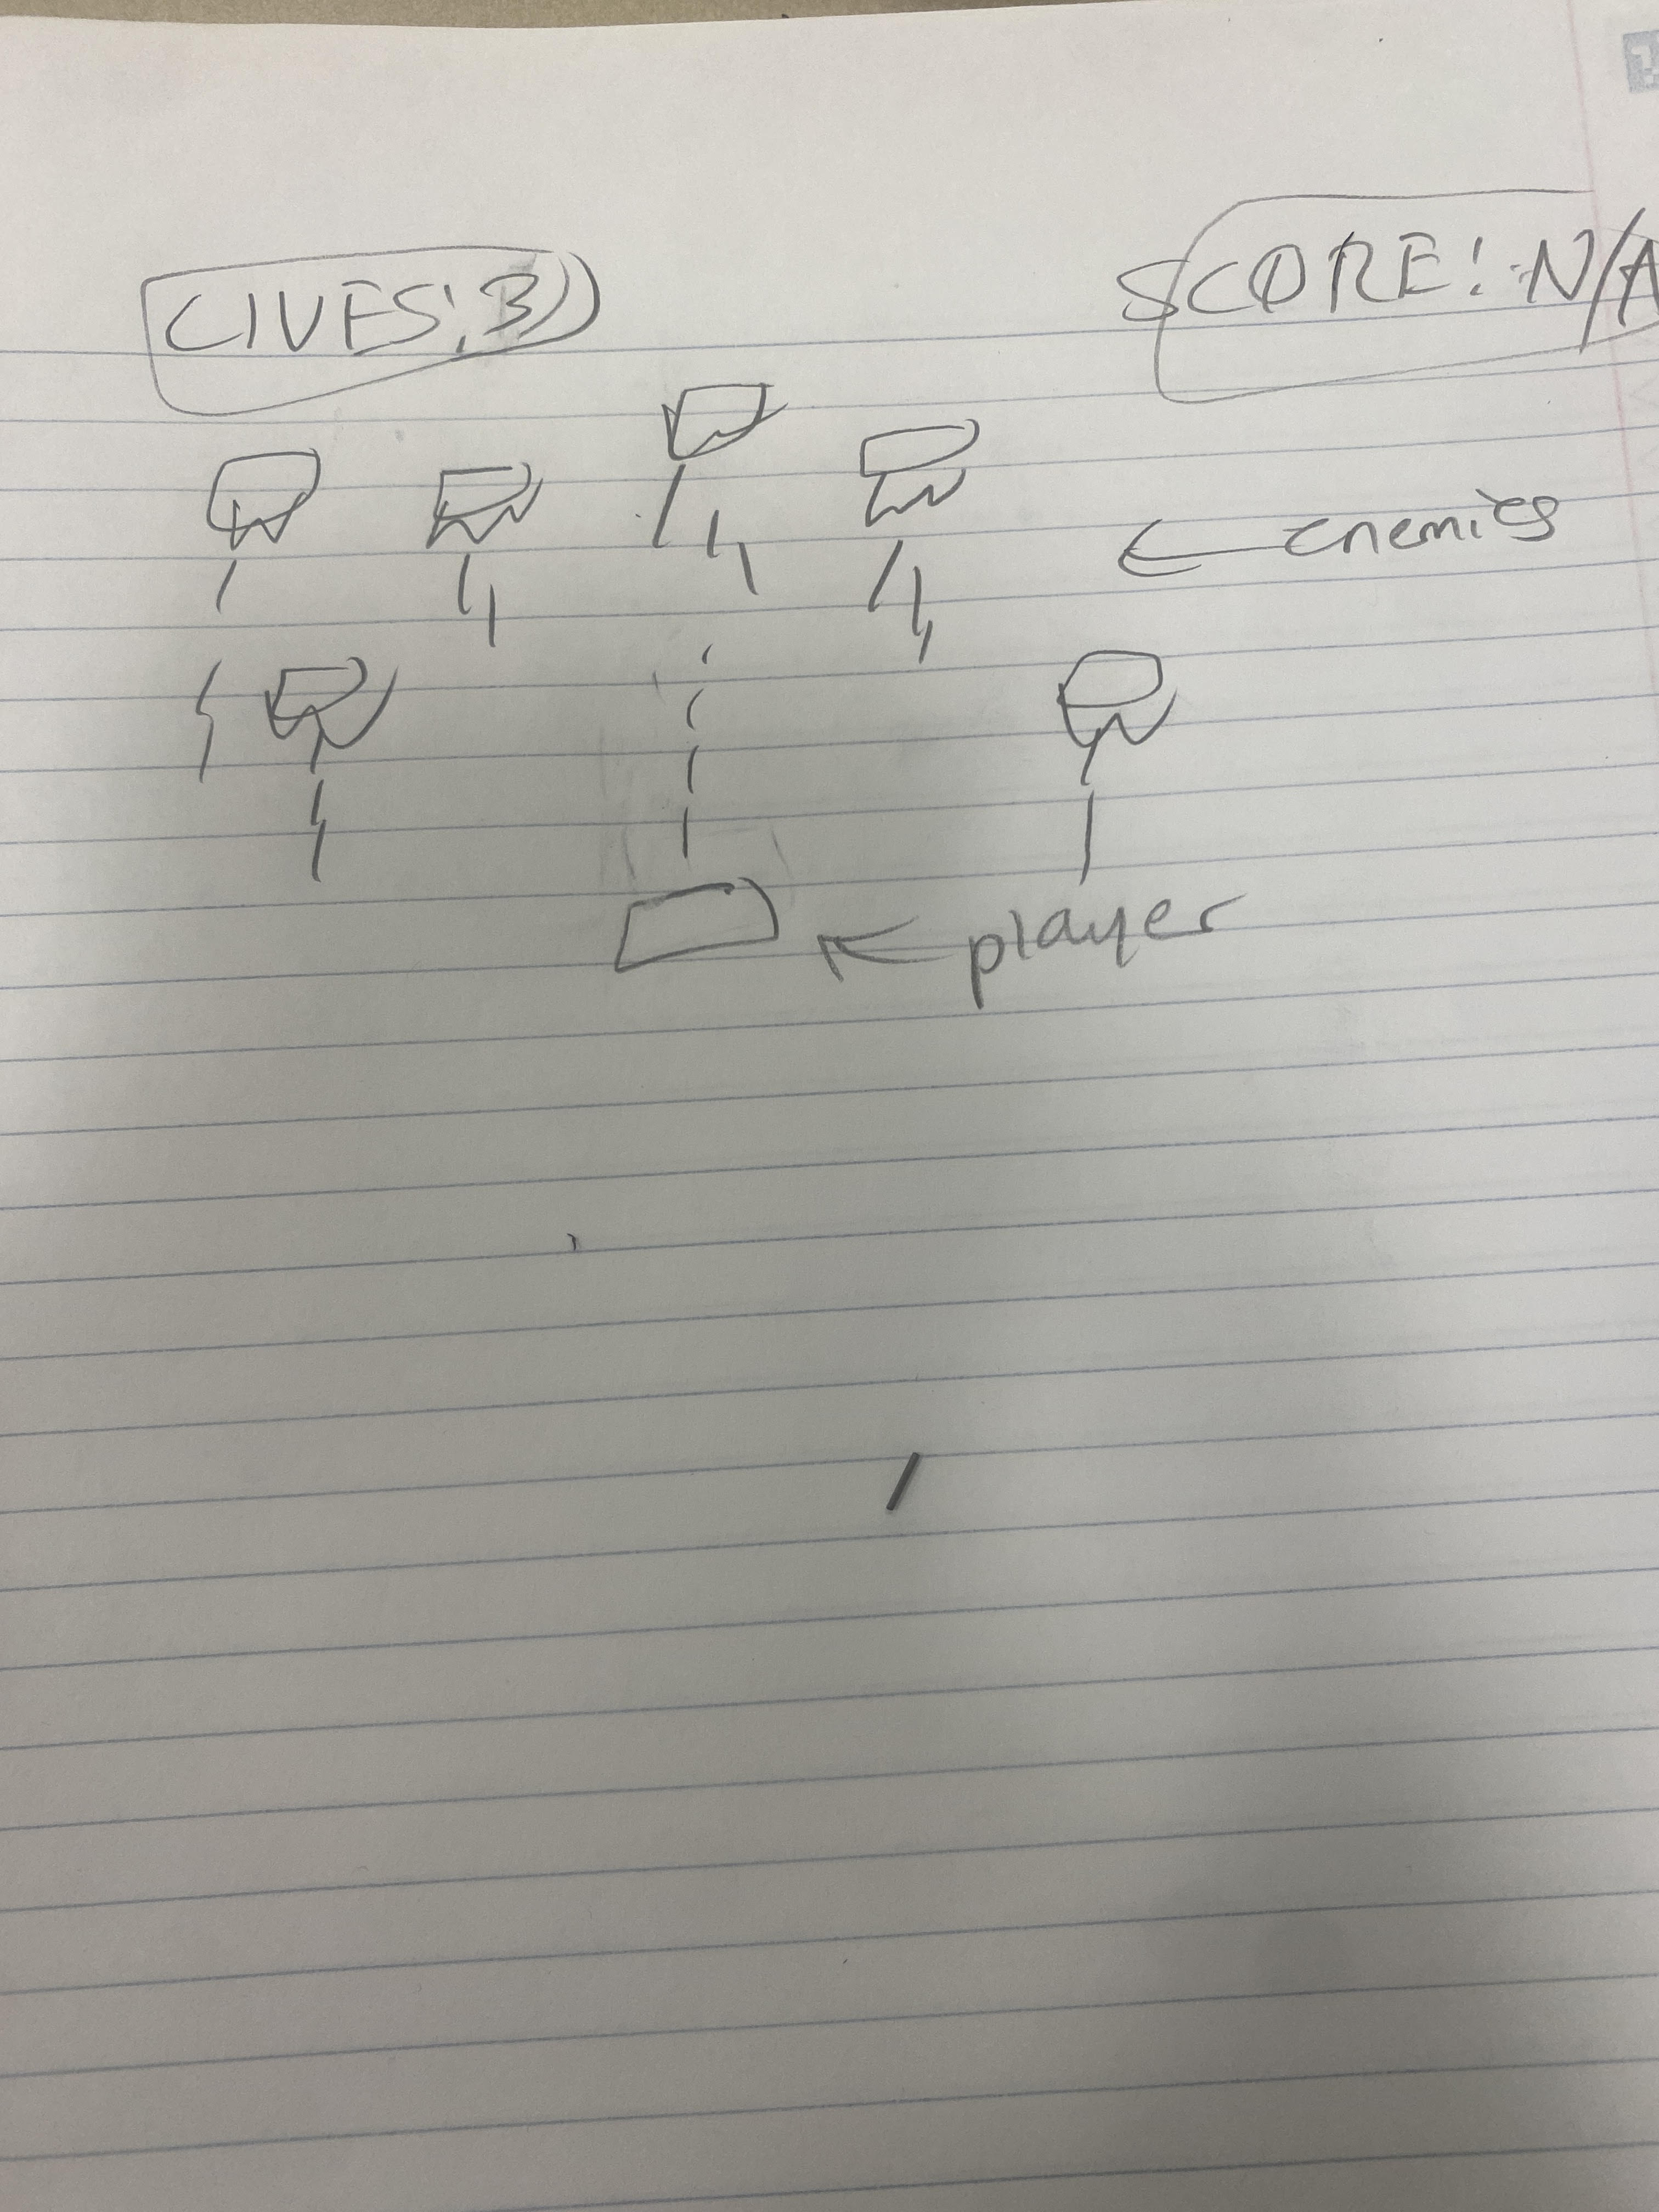 LIVES: 3
SCORE: N/A
enemies
player